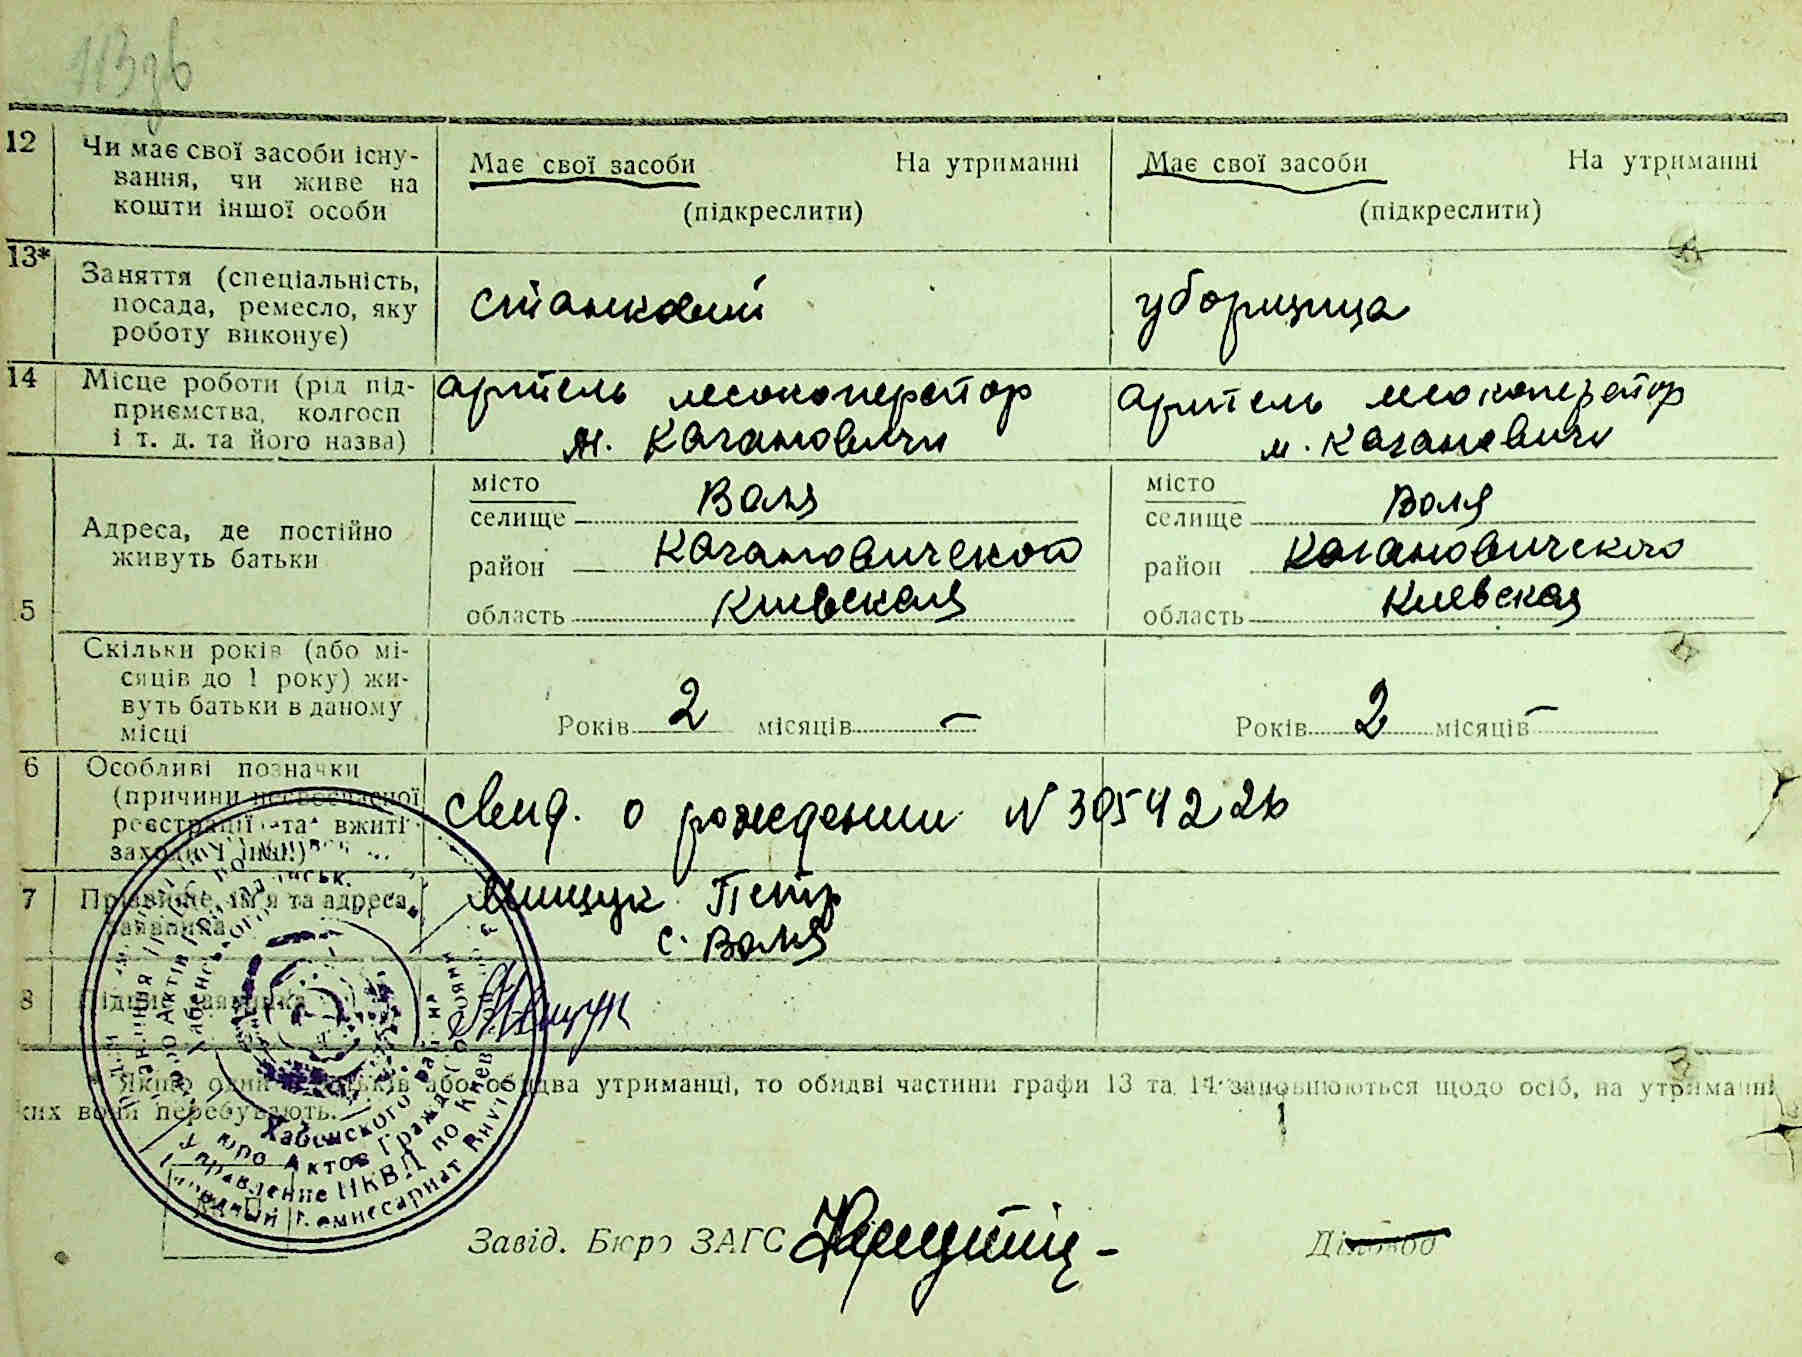 113дв
12 Чи має свої засоби існу-
вання, чи живе на
кошти іншої особи
Має свої засоби На утриманні
(підкреслити)
Має свої засоби На утриманні
(підкреслити)
13* Заняття (спеціальність,
посада, ремесло, яку
роботу виконує)
уборщица
14 Місце роботи (рід під-
приємства, колгосп
і т. д. та його назва)
артель
м. Кагановичи
артель
м. Кагановичи
5 Адреса, де постійно
живуть батьки
місто
селище Воля
район Кагановической
область Киевская
місто
селище Воля
район Кагановического
область Киевская
Скільки років (або мі-
сяців до 1 року) жи-
вуть батьки в даному
місці
Років 2 місяців –
Років 2 місяців –
6 Особливі позначки
(причини несвоєчасної
реєстрації та вжиті
заходи і інш.)
свид. о рождении N
7 Прізвище, ім'я та адреса
заявника
Мищук Петр
с. Воля
8 Підпис заявника
Мищук
* Якщо один з батьків або обидва утриманці, то обидві частини графи 13 та 14 заповнюються щодо осіб, на утриманні
ких вони перебувають.
Хабенского
Бюро Актов Гражд.
Управление НКВД по Киев
Народный Комиссариат Внут
Завід. Бюро ЗАГС
Діловод